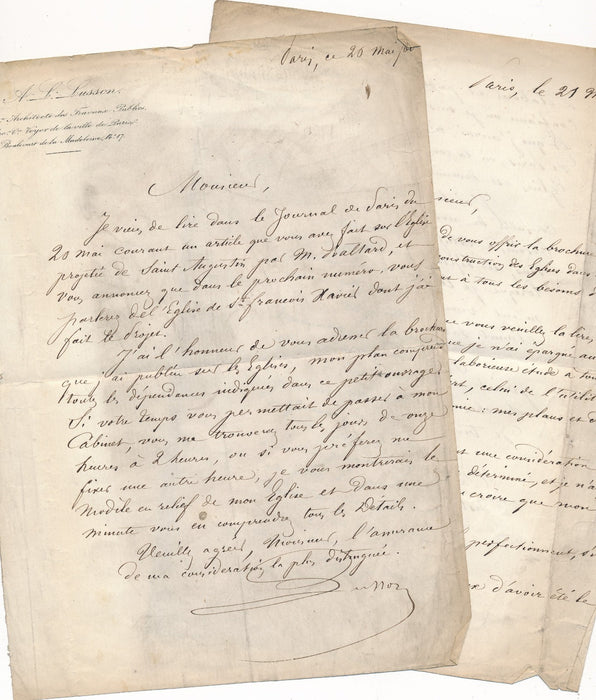 A. L. Lusson.
Architecte des Travaux Publics,
Voyer de la ville de Paris,
Boulevart de la Madeleine, N° 17.
Paris, ce 20 mai
Monsieur,
Je viens de lire dans le Journal de Paris du
20 mai courant un article que vous avez fait sur l'Eglise
projetée de Saint Augustin par M. Baltard, et
vous annoncez que dans le prochain numero, vous
parlerez de l'Eglise de St. francois Xavier dont j'ai
fait le Projet.
J'ai l'honneur de vous adresser la brochure
que j'ai publiée sur les Eglises, mon plan comprend
tous les dépendances indiquées dans ce petit ouvrage
Si votre temps vous permettait de passer à mon
Cabinet, vous me trouverez tous les jours de onze
heures à 2 heures, ou si vous préferez me
fixer une autre heure, je vous montrerais le
modèle en relief de mon Eglise et dans une
minute vous en comprendrez tous les Details.
Veuillez agreer, Monsieur, l'assurance
de ma consideration la plus distinguée.
Paris, le 21
sieur,
de vous offrir la brochure
construction des Eglises dans
à tous les besoins d
vous veuillez la lire,
que je n'ai épargné au
laborieuse étude à tou
celui de l'utilit
mie : mes plans et d
une considération
déterminé, et je n'a
croire que mon
perfectionment, s
d'avoir été le